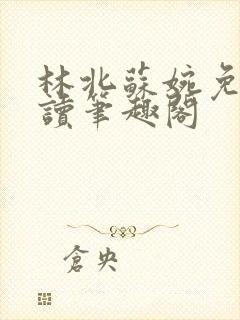 林北蘇婉免
讀筆趣閣
倉央